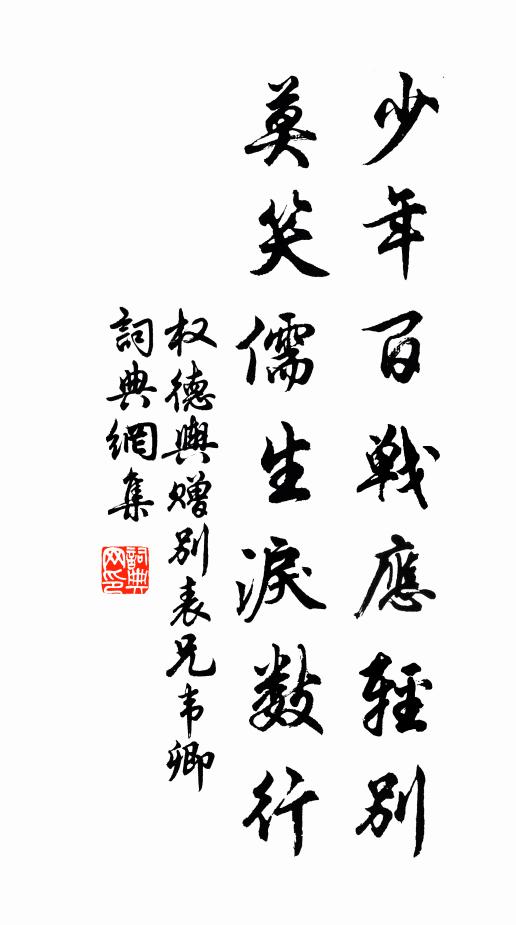 少年百戰應輕別
莫笑儒生淚數行
权德輿赠别表兄韦卿
詞典網集
詞典网印